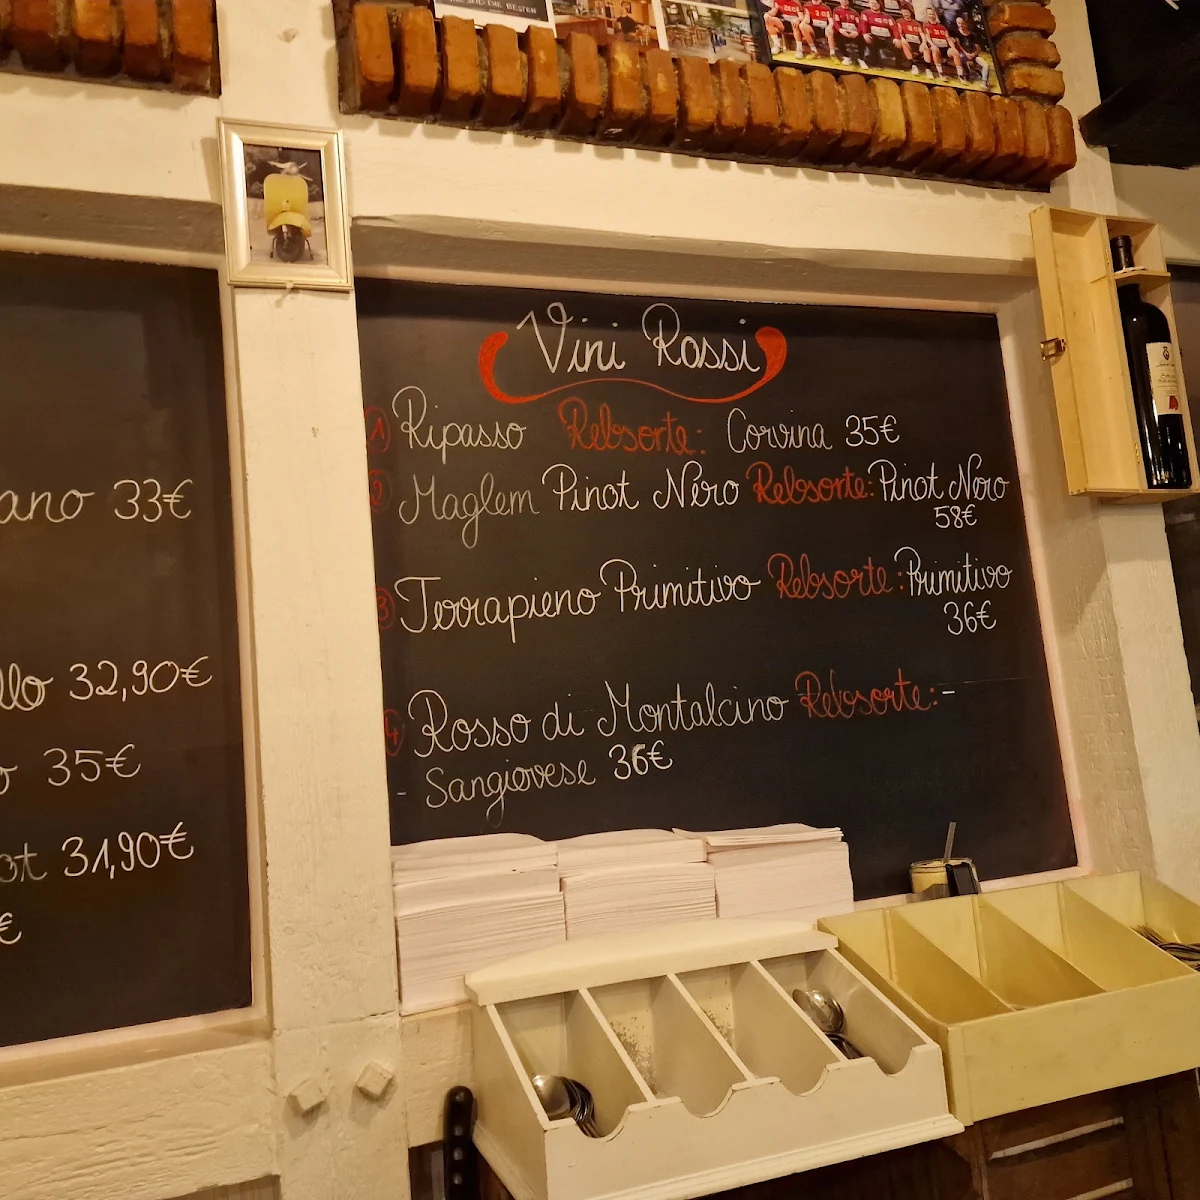 UND DIE BESTEN
ano 33€
llo 32,90€
o 35€
ot 31,90€
€
Vini Rossi
1 Ripasso Rebsorte: Corvina 35€
2 Maglem Pinot Néro Rebsorte: Pinot Nero
58€
3 Terrapieno Primitivo Rebsorte: Primitivo
36€
4 Rosso di Montalcino Rebsorte: -
- Sangiovese 36€